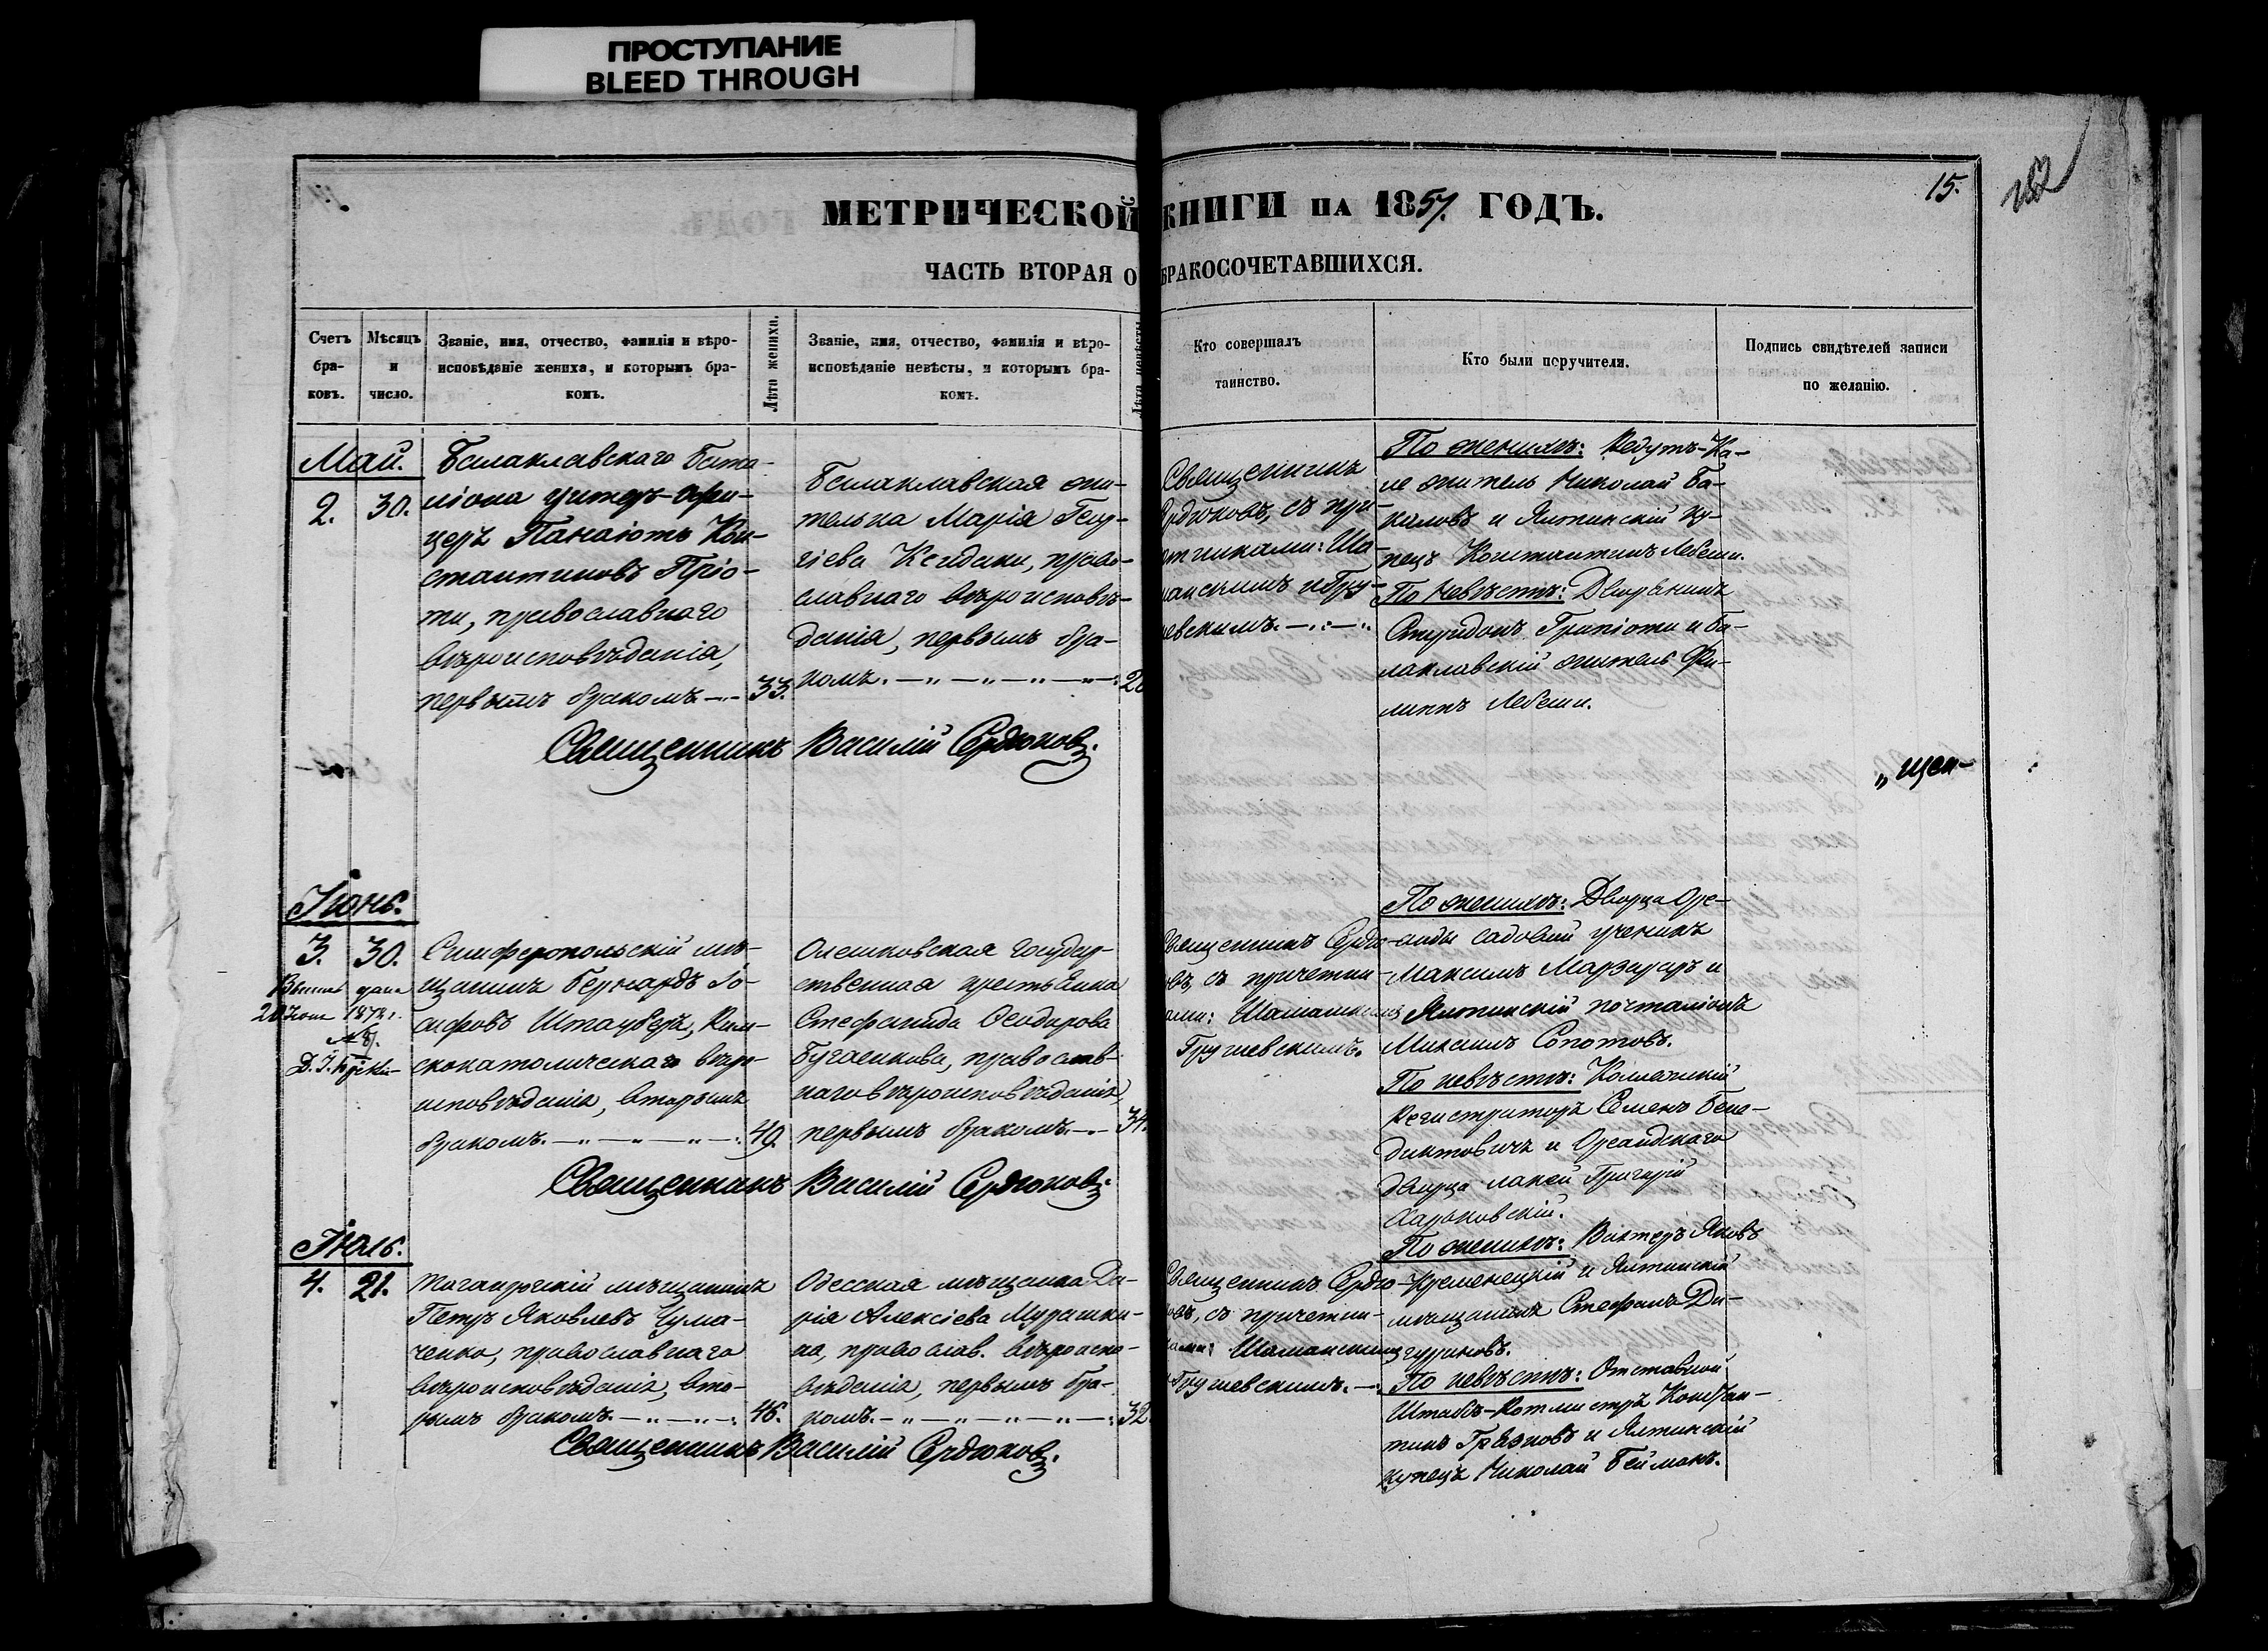 ПРОСТУПАНИЕ
BLEED THROUGH
МЕТРИЧЕСКОЙ КНИГИ на 1857. ГОДЪ.
15.
182
ЧАСТЬ ВТОРАЯ О БРАКОСОЧЕТАВШИХСЯ.
Счетъ
бра-
ковъ.
Мѣсяцъ
и
число.
Званіе, имя, отчество, фамилія и вѣро-
исповѣданіе жениха, и которымъ бра-
комъ.
Лѣта жениха.
Званіе, имя, отчество, фамилія и вѣро-
исповѣданіе невѣсты, и которымъ бра-
комъ.
Лѣта невѣсты
Кто совершалъ
таинство.
Кто были поручители.
Подпись свидѣтелей записи
по желанію.
Май.
2. 30.
Балаклавскаго Бата-
ліона унтеръ-офи-
церъ Панаіотъ Кон-
стантиновъ Пріо-
ти, православнаго
вѣроисповѣданія,
первымъ бракомъ 33.
Балаклавская жи-
тельна Марія Геор-
гіева православнаго вѣроисповѣ-
данія, первымъ бра-
комъ.
Священникъ
Сердюковъ, съ при-
четниками: Ша-
манскимъ и Гру-
шевскимъ.
По женихѣ: Редутъ-Ка-
ле житель Николай Ба-
каловъ и Ялтинскій ку-
пецъ Константинъ Лебеши.
По невѣстѣ: Дворянинъ
Спиридонъ Грапіоти и Ба-
лаклавскій житель Фи-
липпъ Лебеши.
Священникъ Василій Сердюковъ.
„ щен-
Іюнь.
3. 30.
20 Іюня 1872 г.
Симферопольскій мѣ-
щанинъ Бернардъ Іо-
сифовъ Штауберъ, Рим-
скокатолическаго вѣро-
исповѣданія, вторымъ
бракомъ. 49.
Олешковская государ-
ственная крестьянка
Стефанида Ѳеодорова
Бугаенкова, православ-
наго вѣроисповѣданія,
первымъ бракомъ. 34.
Священникъ Сердю-
ковъ, съ причетни-
ками: Шаманскимъ
Грушевскимъ.
По женихѣ: Дворца Оре-
анды садовый ученикъ
Максимъ Марзараръ и
Ялтинскій почталіонъ
Михаилъ Сопотовъ.
По невѣстѣ: Коллежскій
Регистраторъ Семенъ Бене-
диктовичъ и Ореандскаго
дворца лакей Григорій
Харьковскій.
Священникъ Василій Сердюковъ.
Іюль.
4. 21.
Таганрогскій мѣщанинъ
Петръ Яковлевъ Чума-
ченко, православнаго
вѣроисповѣданія, вто-
рымъ бракомъ. 46.
Одесская мѣщанка Да-
рія Алексіева Мурашки-
на, православ. вѣроиспо-
вѣданія, первымъ бра-
комъ. 32.
Священникъ Сердю-
ковъ, съ причетни-
ками: Шаманскимъ
Грушевскимъ.
По женихѣ: Вахтеръ Яковъ
Кременецкій и Ялтинскій
мѣщанинъ Стефанъ Ди-
гуриновъ.
По невѣстѣ: Отставной
Штабъ-Ротмистръ Констан-
тинъ Грязновъ и Ялтинскій
купецъ Николай Бейманъ.
Священникъ Василій Сердюковъ.